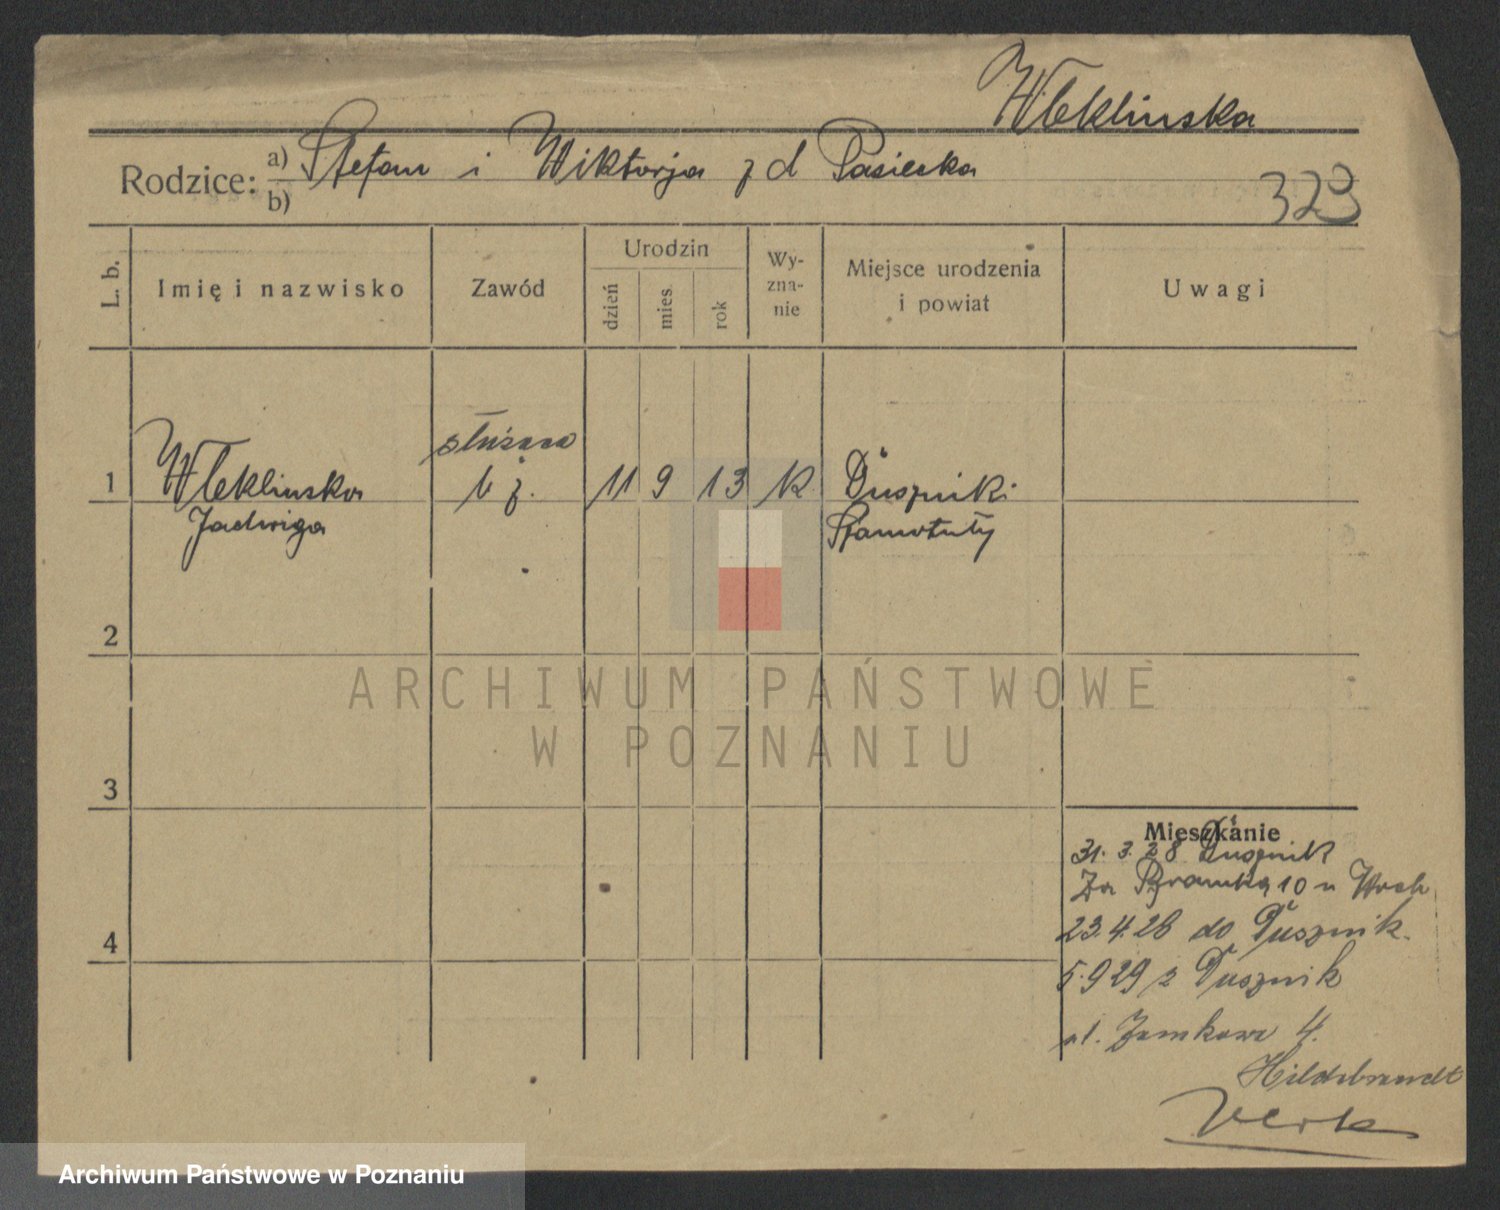 Wleklinska
Rodzice: a) Stefan i Wiktorja z d Pasiecka
b)
323
L. b.
Imię i nazwisko
Zawód
Urodzin
dzień
mies.
rok
Wy-
zna-
nie
Miejsce urodzenia
i powiat
Uwagi
służąca
1 Wleklinska b. z. 11 9 13 k. Duszniki
Jadwiga Szamotuły
2
3
4
Mieszkanie
31. 3. 28 Dusznik
Za Bramką 10 u
23.4.28 do Dusznik.
5.9 29 z Dusznik
ul. Zamkowa 4.
Hildebrandt
ARCHIWUM PAŃSTWOWE
W POZNANIU
Archiwum Państwowe w Poznaniu